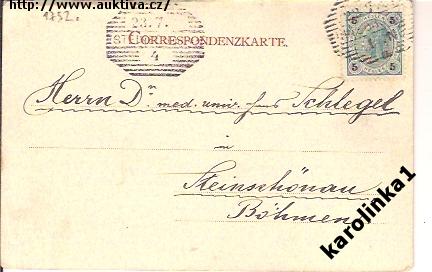 http://www.auktiva.cz/
1752.
23.7.
CORRESPONDENZKARTE.
4
5 5
5 5
Herrn Dr. med. univ. Schlegel
in
Steinschönau
Böhmen
karolinka1